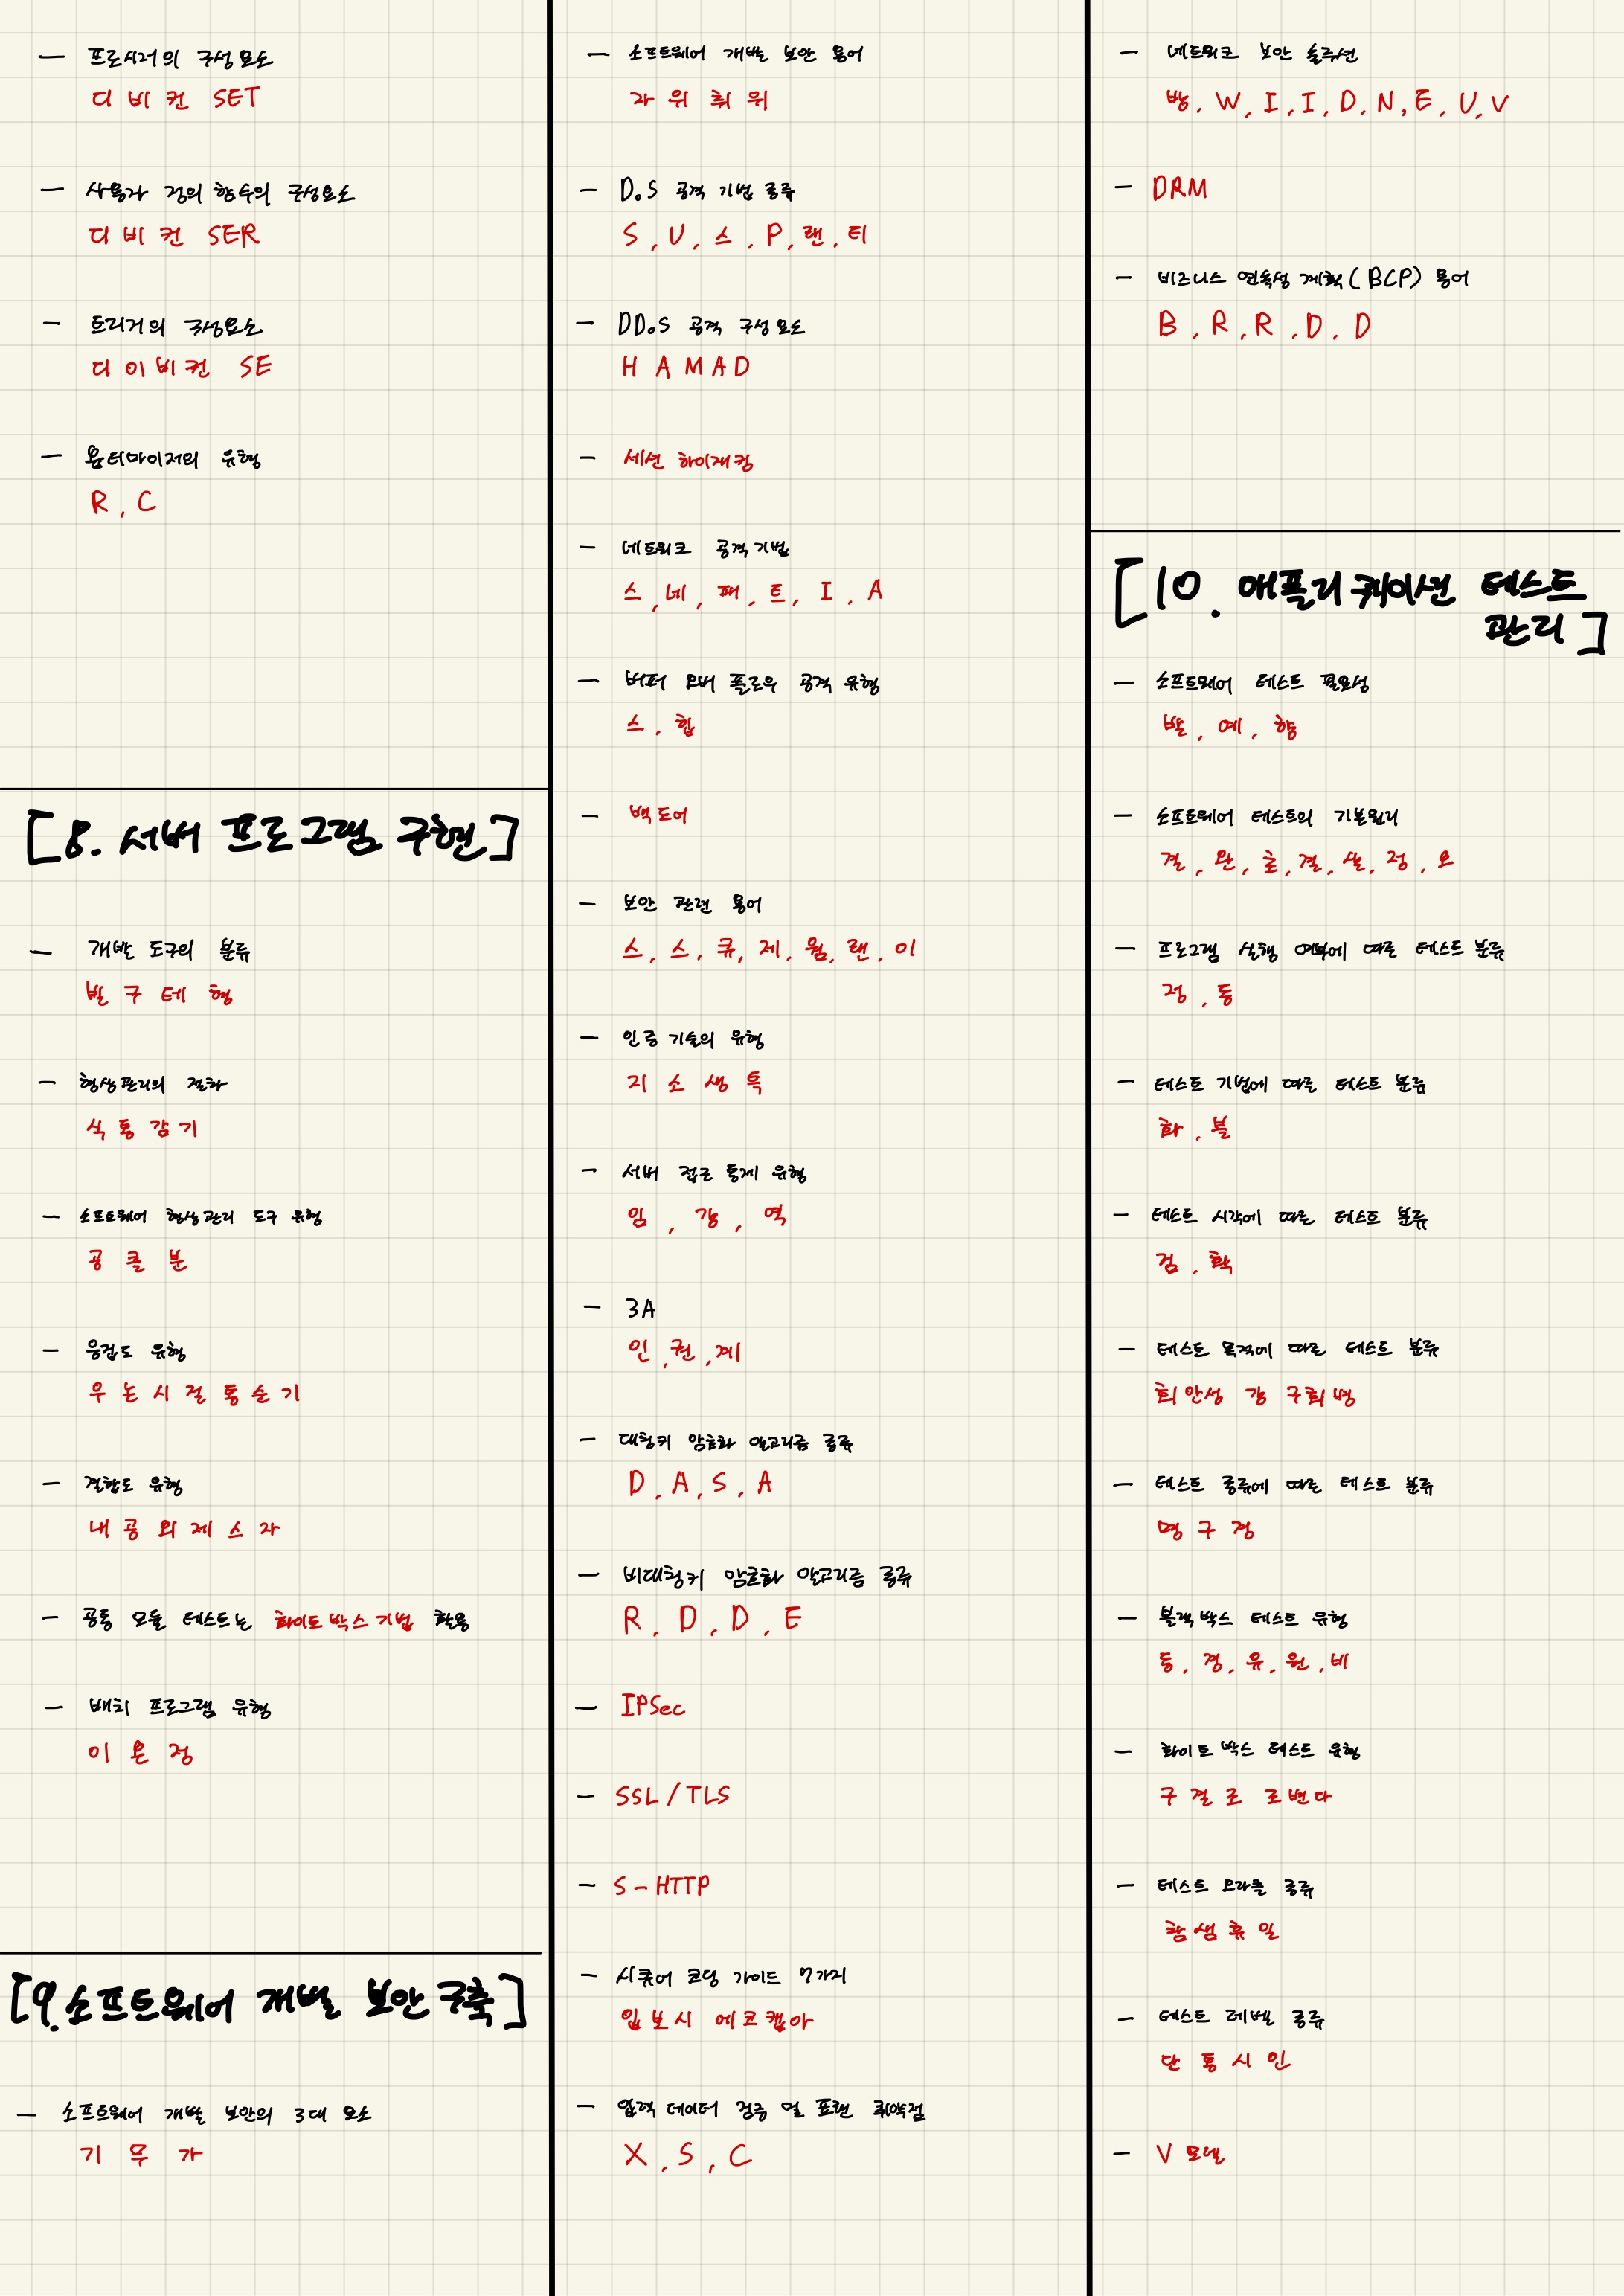 — 프로시저의 구성요소
디 비 컨 SET
— 사용자 정의 함수의 구성요소
디 비 컨 SER
— 트리거의 구성요소
디 이 비 컨 SE
— 옵티마이저의 유형
R, C
[8. 서버 프로그램 구현]
— 개발 도구의 분류
빌 구 테 형
— 형상관리의 절차
식 통 감 기
— 소프트웨어 형상관리 도구 유형
공 클 분
— 응집도 유형
우 논 시 절 통 순 기
— 결합도 유형
내 공 외 제 스 자
— 공통 모듈 테스트는 화이트박스 기법 활용
— 배치 프로그램 유형
이 온 정
[9. 소프트웨어 개발 보안 구축]
— 소프트웨어 개발 보안의 3대 요소
기 무 가
— 소프트웨어 개발 보안 용어
자 위 취 위
— DoS 공격 기법 종류
S, U, 스, P, 랜, 티
— DDoS 공격 구성요소
H A M A D
— 세션 하이재킹
— 네트워크 공격기법
스, 네, 패, 트, I, A
— 버퍼 오버 플로우 공격 유형
스, 힙
— 백도어
— 보안 관련 용어
스, 스, 큐, 제, 웜, 랜, 이
— 인증 기술의 유형
지 소 생 특
— 서버 접근 통제 유형
임, 강, 역
— 3A
인, 권, 계
— 대칭키 암호화 알고리즘 종류
D, A, S, A
— 비대칭키 암호화 알고리즘 종류
R, D, D, E
— IPSec
— SSL/TLS
— S-HTTP
— 시큐어 코딩 가이드 7가지
입 보 시 에 코 캡 아
— 입력 데이터 검증 및 표현 취약점
X, S, C
— 네트워크 보안 솔루션
방, W, I, I, D, N, E, U, V
— DRM
— 비즈니스 연속성 계획(BCP) 용어
B, R, R, D, D
[10. 애플리케이션 테스트
관리]
— 소프트웨어 테스트 필요성
발, 예, 향
— 소프트웨어 테스트의 기본원리
결, 완, 초, 결, 살, 정, 오
— 프로그램 실행 여부에 따른 테스트 분류
정, 동
— 테스트 기법에 따른 테스트 분류
화, 블
— 테스트 시각에 따른 테스트 분류
검, 확
— 테스트 목적에 따른 테스트 분류
회 안 성 강 구 회 병
— 테스트 종류에 따른 테스트 분류
명 구 경
— 블랙박스 테스트 유형
동, 경, 유, 원, 비
— 화이트박스 테스트 유형
구 결 조 조 변 다
— 테스트 오라클 종류
참 샘 휴 일
— 테스트 레벨 종류
단 통 시 인
— V 모델